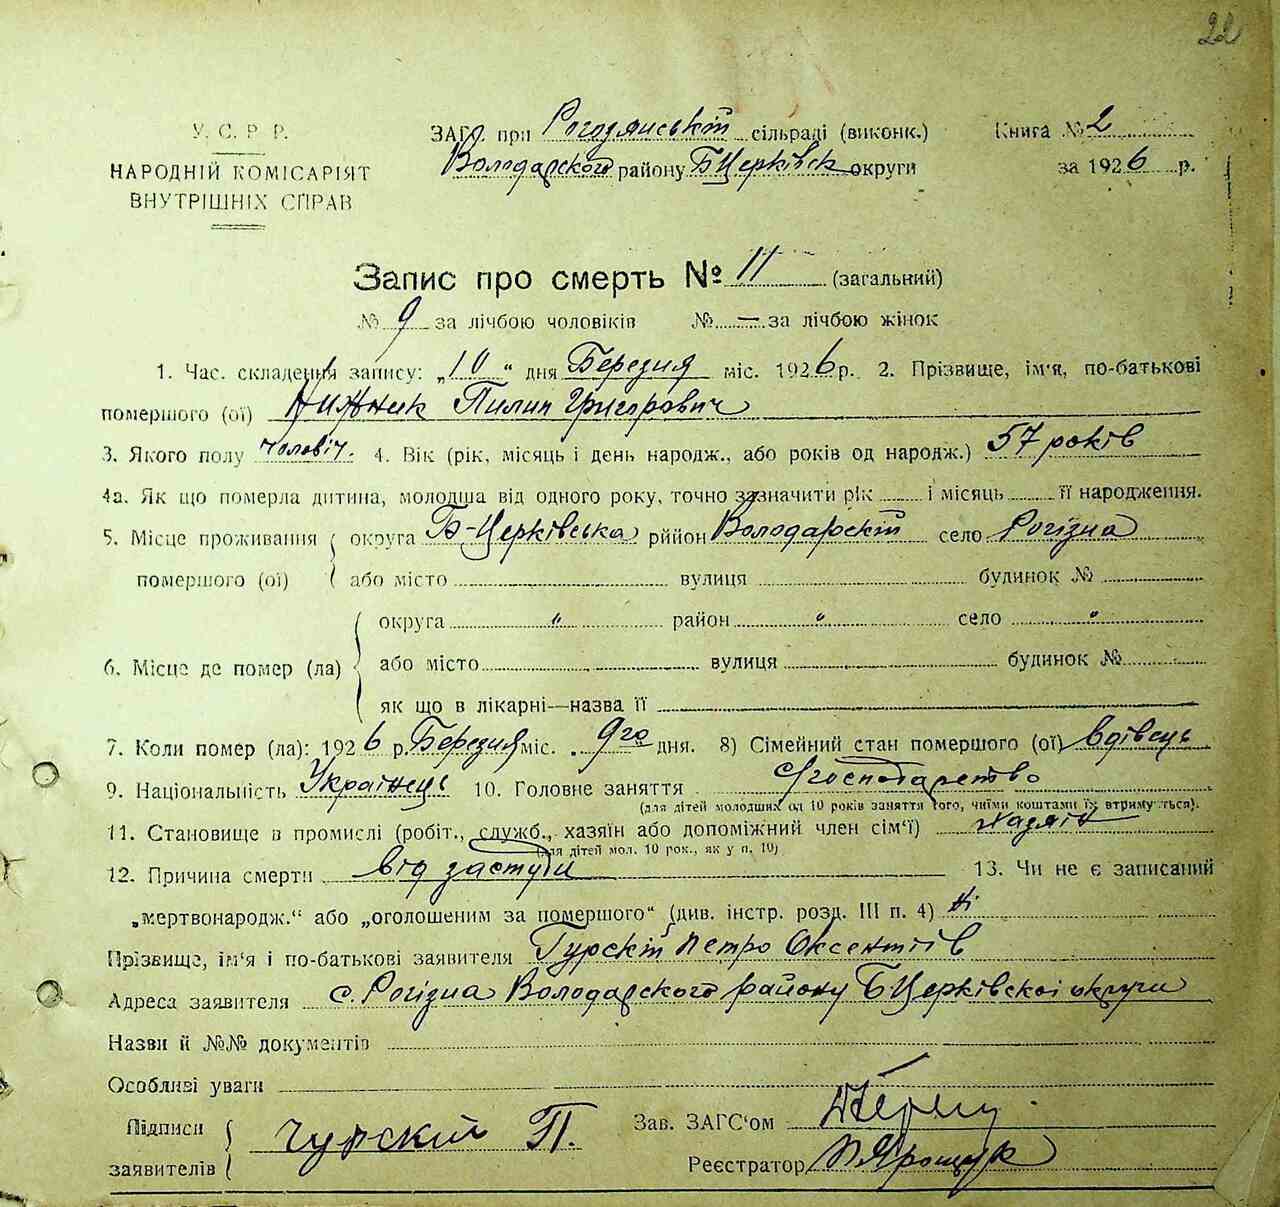 22
У. С. Р. Р.
НАРОДНІЙ КОМІСАРІЯТ
ВНУТРІШНІХ СПРАВ
ЗАГС при сільраді (виконк.)
Володарского району Б Церківск округи
Книга № 2
за 1926 р.
Запис про смерть № 11 (загальний)
№ 9 за лічбою чоловіків №  — за лічбою жінок
1. Час складення запису: „10“ дня Березня міс. 1926 р. 2. Прізвище, ім'я, по-батькові
помершого (ої) Нижник Пилип Григорович
3. Якого полу чоловіч. 4. Вік (рік, місяць і день народж., або років од народж.) 57 років
4а. Як що померла дитина, молодша від одного року, точно зазначити рік і місяць її народження.
5. Місце проживання округа Б-Церківська рййон Володарскій село Рогізна
помершого (ої) або місто вулиця будинок №
округа " район " село "
6. Місце де помер (ла) або місто вулиця будинок №
як що в лікарні—назва її
7. Коли помер (ла): 1926 р. Березня міс. 9го дня. 8) Сімейний стан помершого (ої) вдівець
9. Національність Українець 10. Головне заняття
(для дітей молодших од 10 років заняття того, чиїми коштами їх втримуться).
11. Становище в промислі (робіт., служб., хазяїн або допоміжний член сім'ї) хазяїн
(для дітей мол. 10 рок., як у п. 10)
12. Причина смерти від застуди 13. Чи не є записаний
„мертвонародж.“ або „оголошеним за помершого“ (див. інстр. розд. III п. 4) ні
Прізвище, ім'я і по-батькові заявителя Гурскій Петро Оксентіїв
Адреса заявителя с. Рогізна Володарского району Б Церківскої округи
Назви й №№ документів
Особливі уваги
Підписи
заявителів
Гурский П.
Зав. ЗАГС'ом
Реєстратор П Ярощук